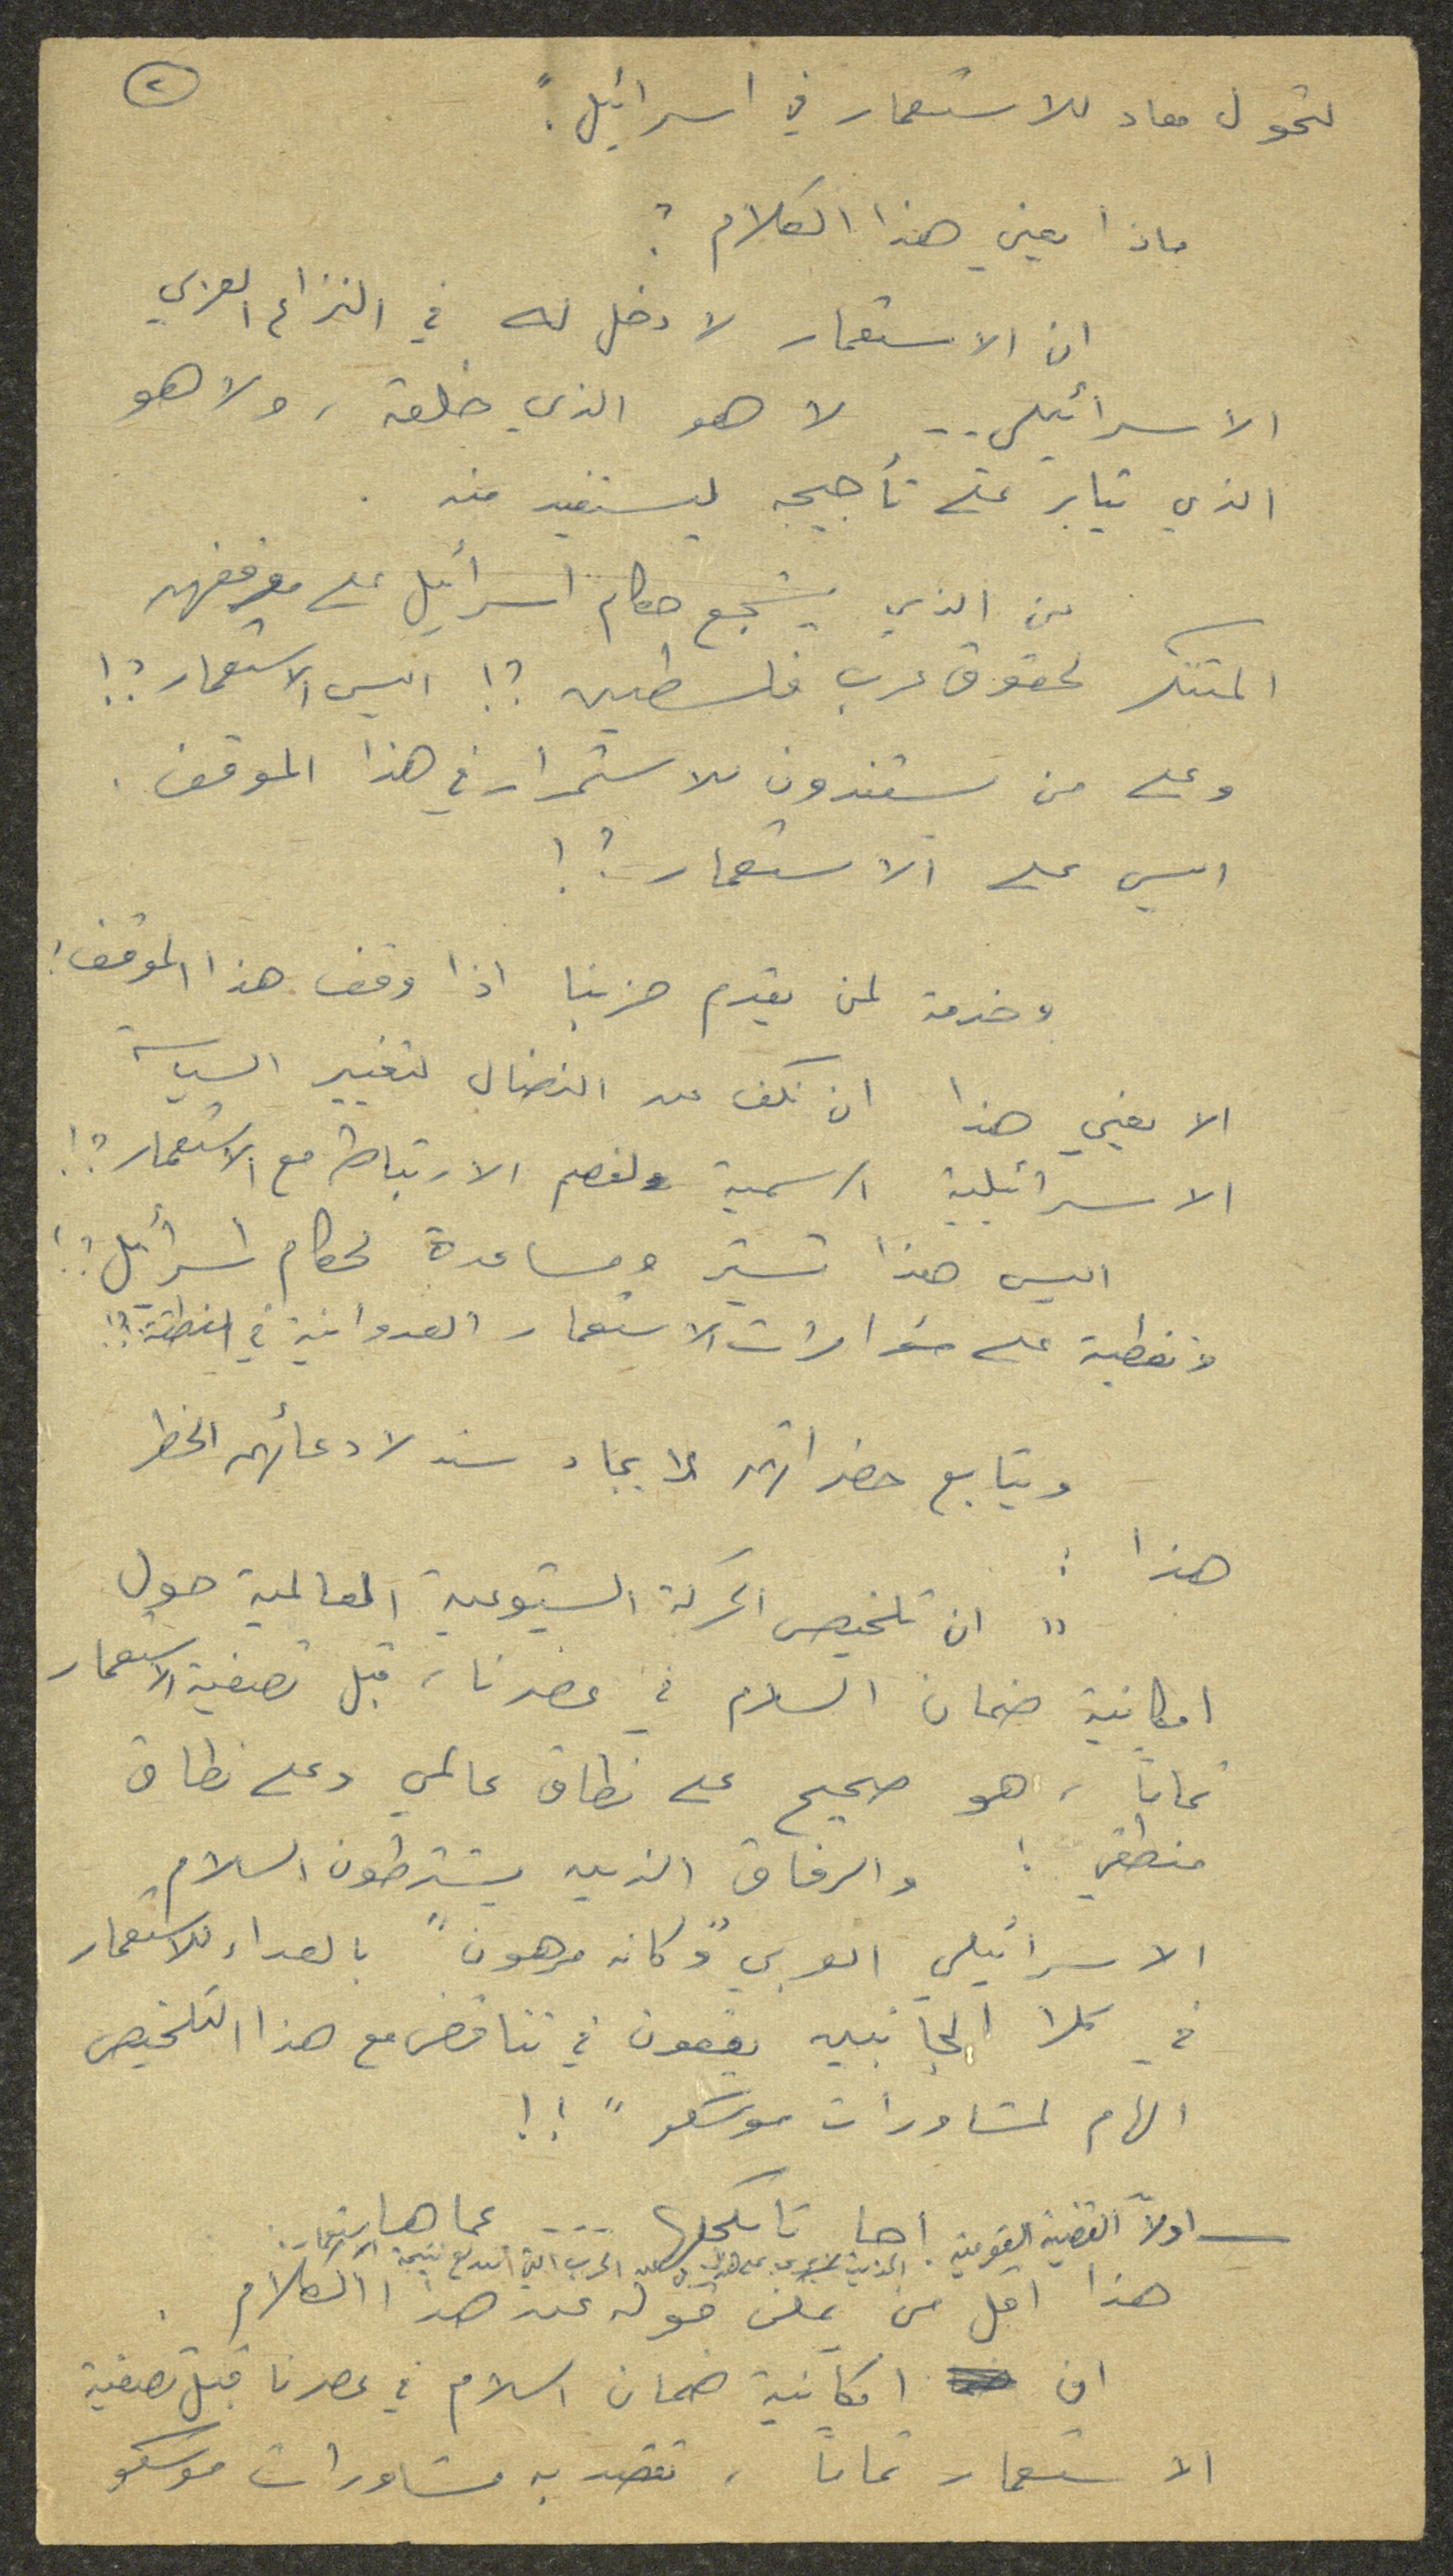 ٢
لتحول معاد للاستعمار في اسرائيل."
ماذا يعني هذا الكلام ؟
ان الاستعمار لا دخل له في النزاع العربي
الاسرائيلي .. لا هو الذي خلقه ، ولا هو
الذي يثابر على تأجيجه ليستفيد منه .
من الذي يشجع حكام اسرائيل على موقفهم
المتنكر لحقوق عرب فلسطين ؟! اليس الاستعمار ؟!
وعلى من يستندون للاستمرار في هذا الموقف .
اليس على الاستعمار ؟!
وخدمة لمن يقدم حزبنا اذا وقف هذا الموقف !
الا يعني هذا ان نكف عن النضال لتغيير السياسة
الاسرائيلية الرسمية ولفصم الارتباط مع الاستعمار ؟!
اليس هذا تستر ومساعدة لحكام اسرائيل ؟!
وتغطية على مؤامرات الاستعمار العدوانية في المنطقة ؟!
ويتابع حضراتهم لايجاد سند لادعائهم الخطر
هذا :
" ان تلخيص الحركة الشيوعية العالمية حول
امكانية ضمان السلام في عصرنا ، قبل تصفية الاستعمار
تماماً ، هو صحيح على نطاق عالمي وعلى نطاق
منطقي ! والرفاق الذين يشترطون السلام
الاسرائيلي العربي "وكانه مرهون" بالعداء للاستعمار
في كلا الجانبين يقعون في تناقض مع هذا التلخيص
الهام لمشاورات موسكو " !!
— اولاً القضية القومية . اجا تا يكحلها .... عماها
الحرب التي تندلع نتيجة
هذا اقل من يمكن قوله عن هذا الكلام .
ان امكانية ضمان السلام في عصرنا قبل تصفية
الاستعمار تماماً ، تقصد به مشاورات موسكو